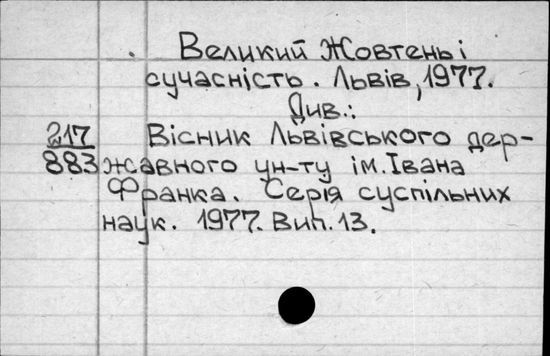 Великий Жовтень і
сучасність. Львів, 1977.
Див.:
217 Вісник Львівського дер-
883 жавного ун-ту ім. Івана
Франка. Серія суспільних
наук. 1977. Вип. 13.